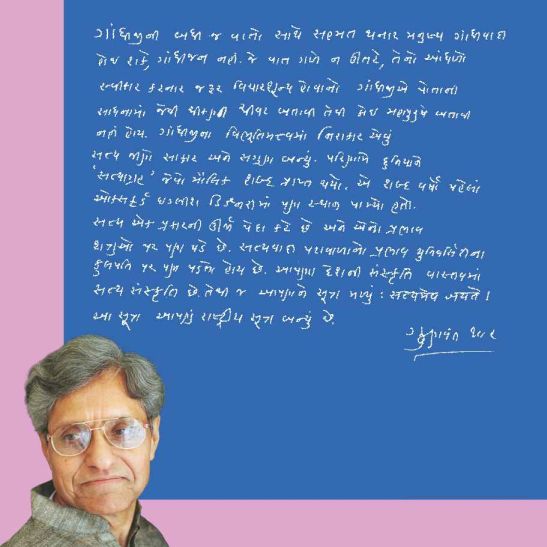 ગાંધીજીની બધી જ વાતો સાથે સહમત થનાર મનુષ્ય ગાંધીવાદી
હોઈ શકે, ગાંધીજન નહીં. જે વાત ગળે ન ઊતરે, તેનો આંધળો
સ્વીકાર કરનાર જરૂર વિચારશૂન્ય હોવાનો. ગાંધીજીએ પોતાની
સાધનામાં જેવી ચીવટ બતાવી તેવી કોઈ મહાપુરુષે બતાવી
નહીં હોય. ગાંધીજીના વિભૂતિમત્ત્વમાં નિરાકાર એવું
સત્ય જાણે સાકાર અને સગુણ બન્યું. પરિણામે દુનિયાને
'સત્યાગ્રહ' જેવો મૌલિક શબ્દ પ્રાપ્ત થયો. એ શબ્દ વર્ષો પહેલાં
ઓક્સફર્ડ ઇંગ્લિશ ડિક્શનરીમાં પણ સ્થાન પામ્યો હતો.
સત્ય એક પ્રકારની ઊર્જા પેદા કરે છે અને એનો પ્રભાવ
શત્રુઓ પર પણ પડે છે. સત્યવાદી પટાવાળાનો પ્રભાવ યુનિવર્સિટીના
કુલપતિ પર પણ પડતો હોય છે. આપણા દેશની સંસ્કૃતિ વાસ્તવમાં
સત્ય સંસ્કૃતિ છે. તેથી જ આપણને સૂત્ર મળ્યું : સત્યમેવ જયતે !
આ સૂત્ર આપણું રાષ્ટ્રીય સૂત્ર બન્યું છે.
ગુણવંત શાહ